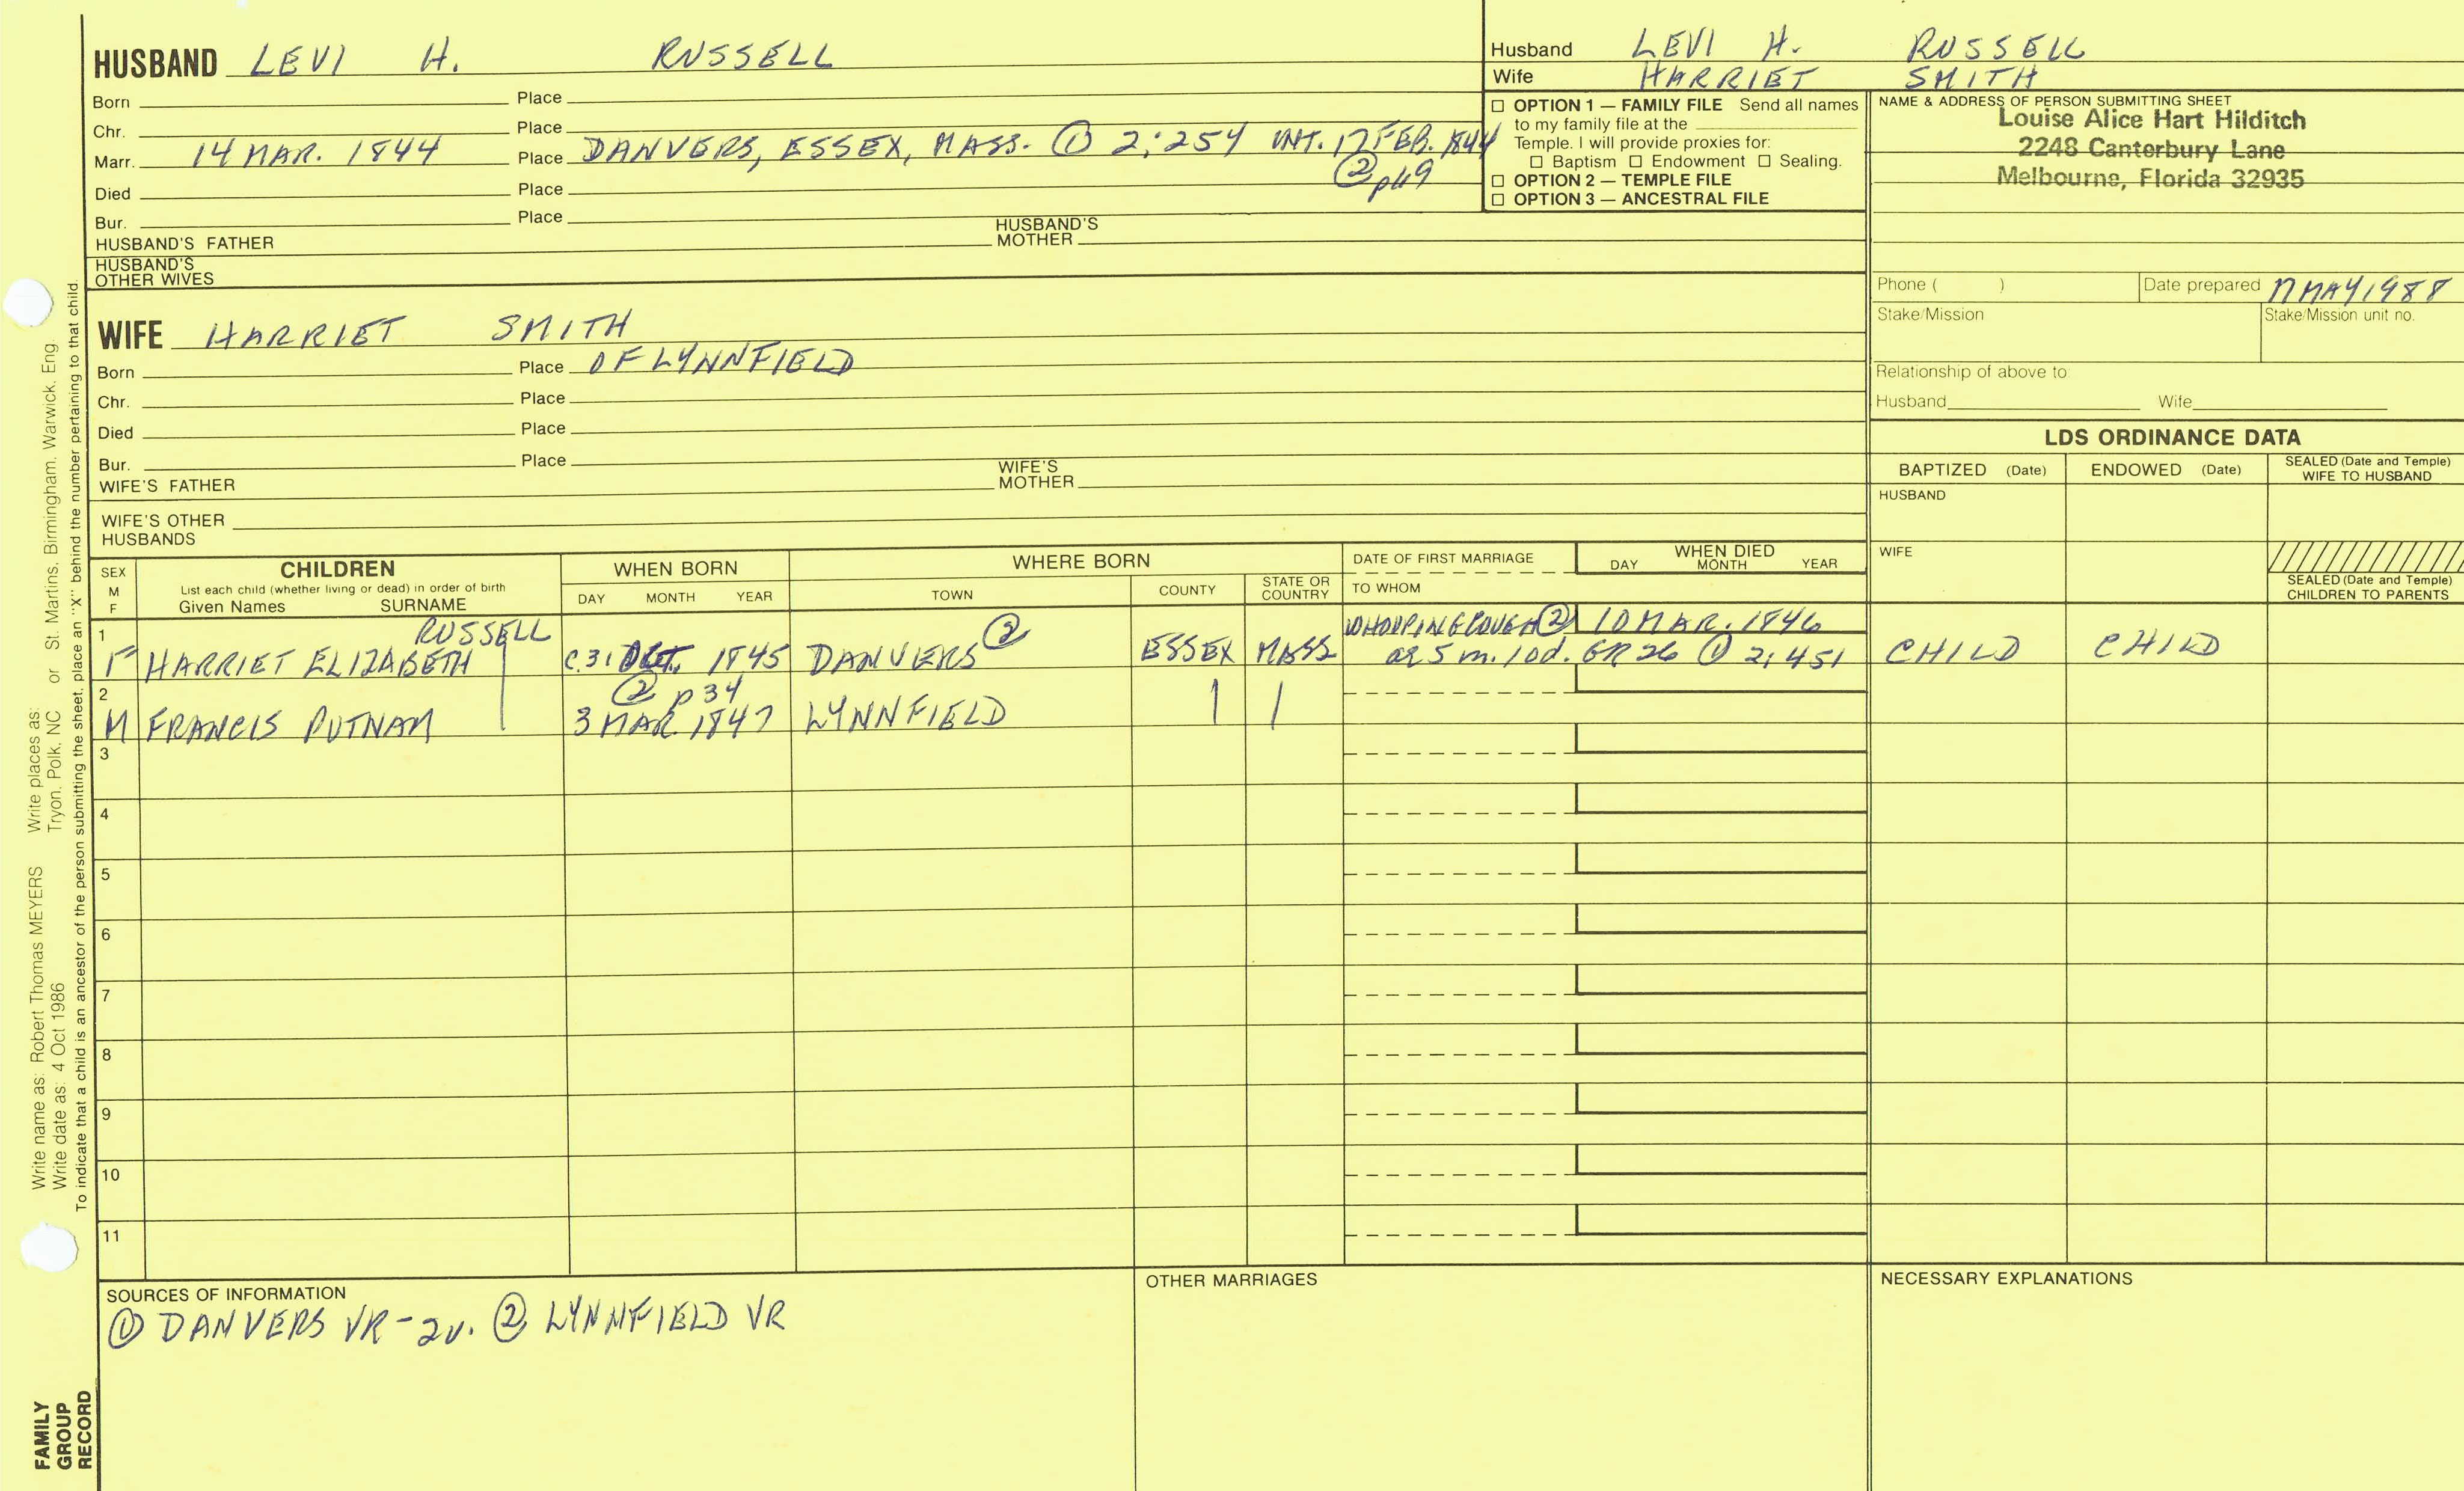 HUSBAND LEVI H. RUSSELL
Born Place
Chr. Place
Marr. 14 MAR. 1844 Place DANVERS, ESSEX, MASS. ① 2:254 INT. 17 FEB. 1844
② p49
Died Place
Bur. Place
HUSBAND'S FATHER HUSBAND'S MOTHER
HUSBAND'S OTHER WIVES
Husband LEVI H. RUSSELL
Wife HARRIET SMITH
☐ OPTION 1 — FAMILY FILE Send all names
to my family file at the
Temple. I will provide proxies for:
☐ Baptism ☐ Endowment ☐ Sealing.
☐ OPTION 2 — TEMPLE FILE
☐ OPTION 3 — ANCESTRAL FILE
NAME & ADDRESS OF PERSON SUBMITTING SHEET
Louise Alice Hart Hilditch
2248 Canterbury Lane
Melbourne, Florida 32935
Phone ( ) Date prepared MAY 1988
Stake/Mission Stake/Mission unit no.
Relationship of above to:
Husband Wife
WIFE HARRIET SMITH
Born Place OF LYNNFIELD
Chr. Place
Died Place
Bur. Place
WIFE'S FATHER WIFE'S MOTHER
WIFE'S OTHER HUSBANDS
LDS ORDINANCE DATA
BAPTIZED (Date) ENDOWED (Date) SEALED (Date and Temple) WIFE TO HUSBAND
HUSBAND
WIFE
SEALED (Date and Temple) CHILDREN TO PARENTS
SEX M F
CHILDREN
List each child (whether living or dead) in order of birth
Given Names SURNAME
WHEN BORN
DAY MONTH YEAR
WHERE BORN
TOWN COUNTY STATE OR COUNTRY
DATE OF FIRST MARRIAGE
TO WHOM
WHEN DIED
DAY MONTH YEAR
1 RUSSELL ② WHOOPING COUGH ② 10 MAR. 1846
F HARRIET ELIZABETH c. 31 OCT. 1845 DANVERS ESSEX MASS ae 5 m. 10d. GR 26 ① 2:451 CHILD CHILD
2 ② p 34
M FRANCIS PUTNAM 3 MAR. 1847 LYNNFIELD
3
4
5
6
7
8
9
10
11
SOURCES OF INFORMATION
① DANVERS VR-2v. ② LYNNFIELD VR
OTHER MARRIAGES
NECESSARY EXPLANATIONS
FAMILY
GROUP
RECORD
Write name as: Robert Thomas MEYERS Write places as: St. Martins, Birmingham, Warwick, Eng.
Write date as: 4 Oct 1986 Tryon, Polk, NC or
To indicate that a child is an ancestor of the person submitting the sheet, place an "X" behind the number pertaining to that child.